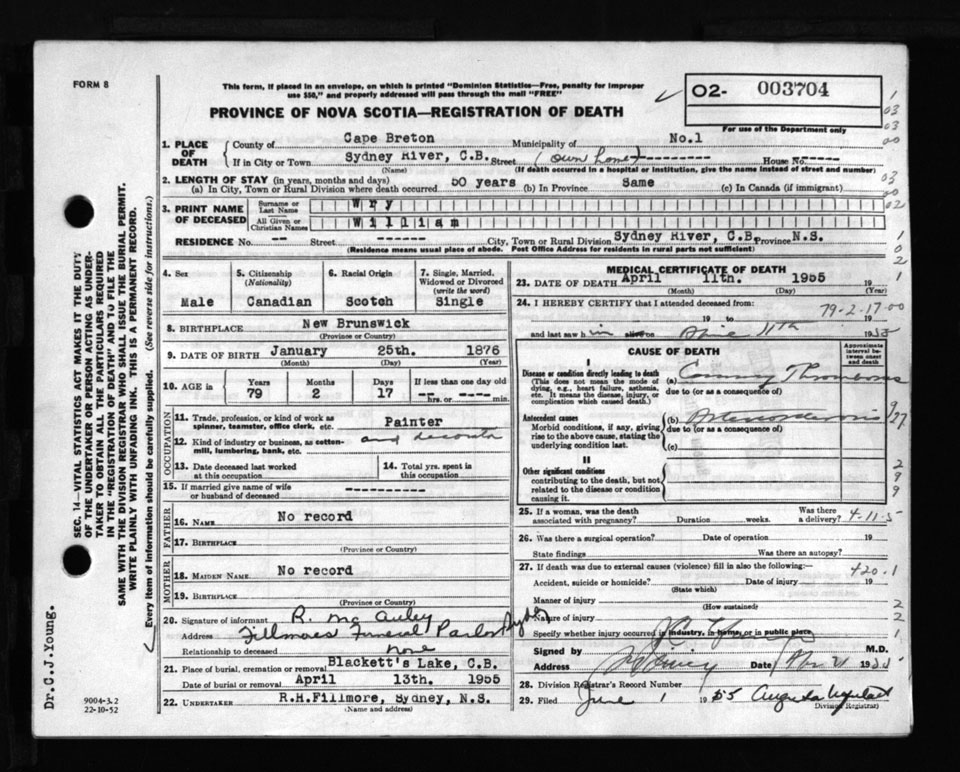 FORM 8
This form, if placed in an envelope, on which is printed "Dominion Statistics—Free, penalty for improper
use $50," and properly addressed will pass through the mail "FREE"
PROVINCE OF NOVA SCOTIA—REGISTRATION OF DEATH
02- 003704
For use of the Department only
1. PLACE OF DEATH
County of Cape Breton Municipality of No.1
If in City or Town Sydney River, C.B. Street (own home) --------- House No. -----
(Name) (If death occurred in a hospital or institution, give the name instead of street and number)
2. LENGTH OF STAY (in years, months and days)
(a) In City, Town or Rural Division where death occurred 50 years (b) In Province Same (c) In Canada (if immigrant)
3. PRINT NAME OF DECEASED
Surname or Last Name Wry
All Given or Christian Names William
RESIDENCE No. -- Street ------- City, Town or Rural Division Sydney River, C.B. Province N.S.
(Residence means usual place of abode. Post Office Address for residents in rural parts not sufficient)
4. Sex Male
5. Citizenship (Nationality) Canadian
6. Racial Origin Scotch
7. Single, Married, Widowed or Divorced (write the word) Single
8. BIRTHPLACE New Brunswick
(Province or Country)
9. DATE OF BIRTH January 25th. 1876
(Month) (Day) (Year)
10. AGE in Years 79 Months 2 Days 17 If less than one day old -- hrs. or -- min.
OCCUPATION
11. Trade, profession, or kind of work as
spinner, teamster, office clerk, etc. Painter
12. Kind of industry or business, as cotton-
mill, lumbering, bank, etc. and
13. Date deceased last worked
at this occupation
14. Total yrs. spent in
this occupation
15. If married give name of wife
or husband of deceased -----------
FATHER
16. NAME No record
17. BIRTHPLACE
(Province or Country)
MOTHER
18. MAIDEN NAME No record
19. BIRTHPLACE
(Province or Country)
20. Signature of informant R. McAuley
Address Fillmores Funeral Parlor Sydney
Relationship to deceased none
21. Place of burial, cremation or removal Blackett's Lake, C.B.
Date of burial or removal April 13th. 1955
22. UNDERTAKER R.H.Fillmore, Sydney, N.S.
(Name and address)
MEDICAL CERTIFICATE OF DEATH
23. DATE OF DEATH April 11th. 1955 19
(Month) (Day) (Year)
24. I HEREBY CERTIFY that I attended deceased from: 79-2-17-00
19 to 19
and last saw him alive on 11th 1955
CAUSE OF DEATH
Approximate interval between onset and death
I
Disease or condition directly leading to death
(This does not mean the mode of
dying, e.g., heart failure, asthenia,
etc. It means the disease, injury, or
complication which caused death.)
(a) Coronary Thrombosis
due to (or as a consequence of)
Antecedent causes
Morbid conditions, if any, giving
rise to the above cause, stating the
underlying condition last.
(b) Arteriosclerosis
due to (or as a consequence of)
(c)
II
Other significant conditions
contributing to the death, but not
related to the disease or condition
causing it.
25. If a woman, was the death
associated with pregnancy? Duration weeks. Was there
a delivery? 4-11-5
26. Was there a surgical operation? Date of operation 19
State findings Was there an autopsy?
27. If death was due to external causes (violence) fill in also the following: 420.1
Accident, suicide or homicide? Date of injury 19
(State which)
Manner of injury
(How sustained)
Nature of injury
Specify whether injury occurred in industry, in home, or in public place
Signed by M.D.
Address Sydney Date 21 1955
28. Division Registrar's Record Number
29. Filed June 1 1955
Division Registrar
SEC. 14—VITAL STATISTICS ACT MAKES IT THE DUTY
OF THE UNDERTAKER OR PERSON ACTING AS UNDER-
TAKER TO OBTAIN ALL THE PARTICULARS REQUIRED
IN THE "REGISTRATION OF DEATH" AND TO FILE THE
SAME WITH THE DIVISION REGISTRAR WHO SHALL ISSUE THE BURIAL PERMIT.
WRITE PLAINLY WITH UNFADING INK. THIS IS A PERMANENT RECORD.
Every item of information should be carefully supplied. (See reverse side for instructions.)
Dr.C.J.Young.
9004-3.2
22-10-52
1
03
03
00
03
00
02
1
0
2
1
9
27
2
9
9
2
2
1